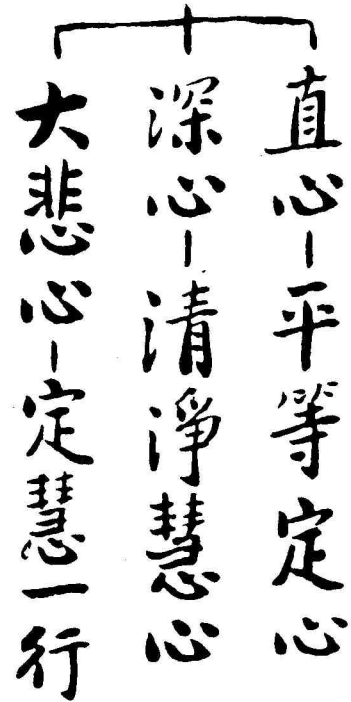 直心－平等定心
深心－清淨慧心
大悲心－定慧一行